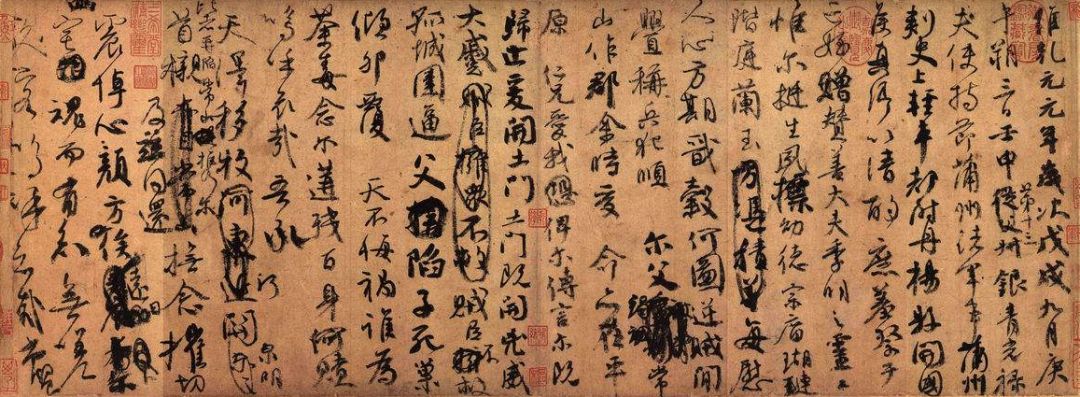 維乾元元年歲次戊戌九月庚
午朔三日壬申第十三叔銀青光祿
夫使持節蒲州諸軍事蒲州
刺史上輕車都尉丹楊縣開國
侯真卿以清酌庶羞祭于
亡姪贈贊善大夫季明之靈曰
惟爾挺生夙標幼德宗廟瑚璉
階庭蘭玉方憑積善每慰
人心方期戩穀何圖逆賊間
釁稱兵犯順爾父竭誠常
山作郡余時受命亦在平
原仁兄愛我俾爾傳言爾既
歸止爰開土門土門既開凶威
大蹙賊臣擁眾不救賊臣不救
孤城圍逼父陷子死巢
傾卵覆天不悔禍誰為
荼毒念爾遘殘百身何贖
嗚呼哀哉吾承
天澤移牧河關泉明
比者再陷常山攜爾
首櫬及茲同還撫念摧切
震悼心顏方俟遠日
宅魂而有知無嗟
久客嗚呼哀哉尚饗